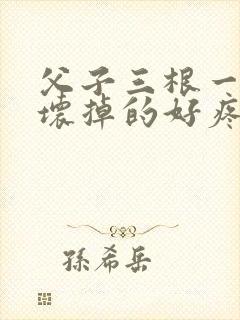 父子三根一
壞掉的好疼
孫希岳